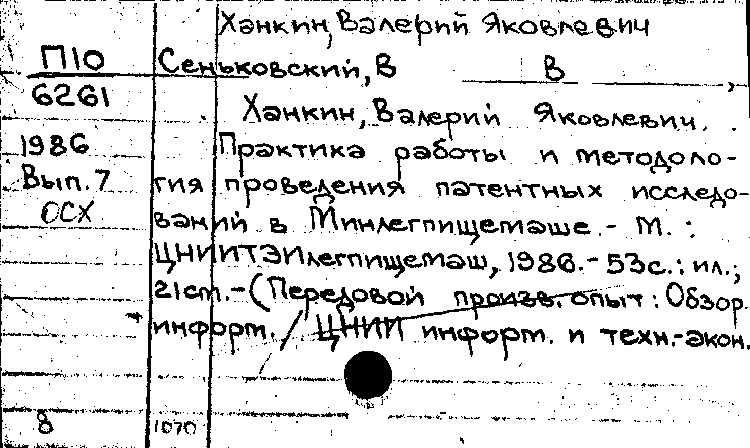 Ханкин, Валерий Яковлевич
П10 Сеньковский, В В
6261 Ханкин, Валерий Яковлевич.
1986 Практика работы и методоло-
Вып. 7 гия проведения патентных исследо-
ОСХ ваний в Минлегпищемаше. - М. :
ЦНИИТЭИлегпищемаш, 1986. - 53с. : ил.;
21cm. - (Передовой произв. опыт : Обзор.
информ. / ЦНИИ информ. и техн.-экон.
8 1070